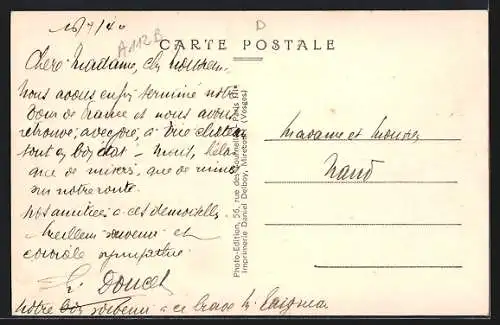 16/7/40
A112B
D
CARTE POSTALE
Chère Madame, cher Monsieur,
Nous avons enfin terminé notre
Tour de France et nous avons
retrouvé, avec joie, à
tout en bon état -
que de misères, que de ruines
sur notre route.
Nos amitiés à ces demoiselles
Meilleur souvenir et
cordiale sympathie.
Doucet
Notre bon souvenir à ce brave M.
Photo-Edition, 56, rue des Tournelles, Paris III°
Imprimerie Daniel Delboy, Mirecourt (Vosges)
Madame et Monsieur